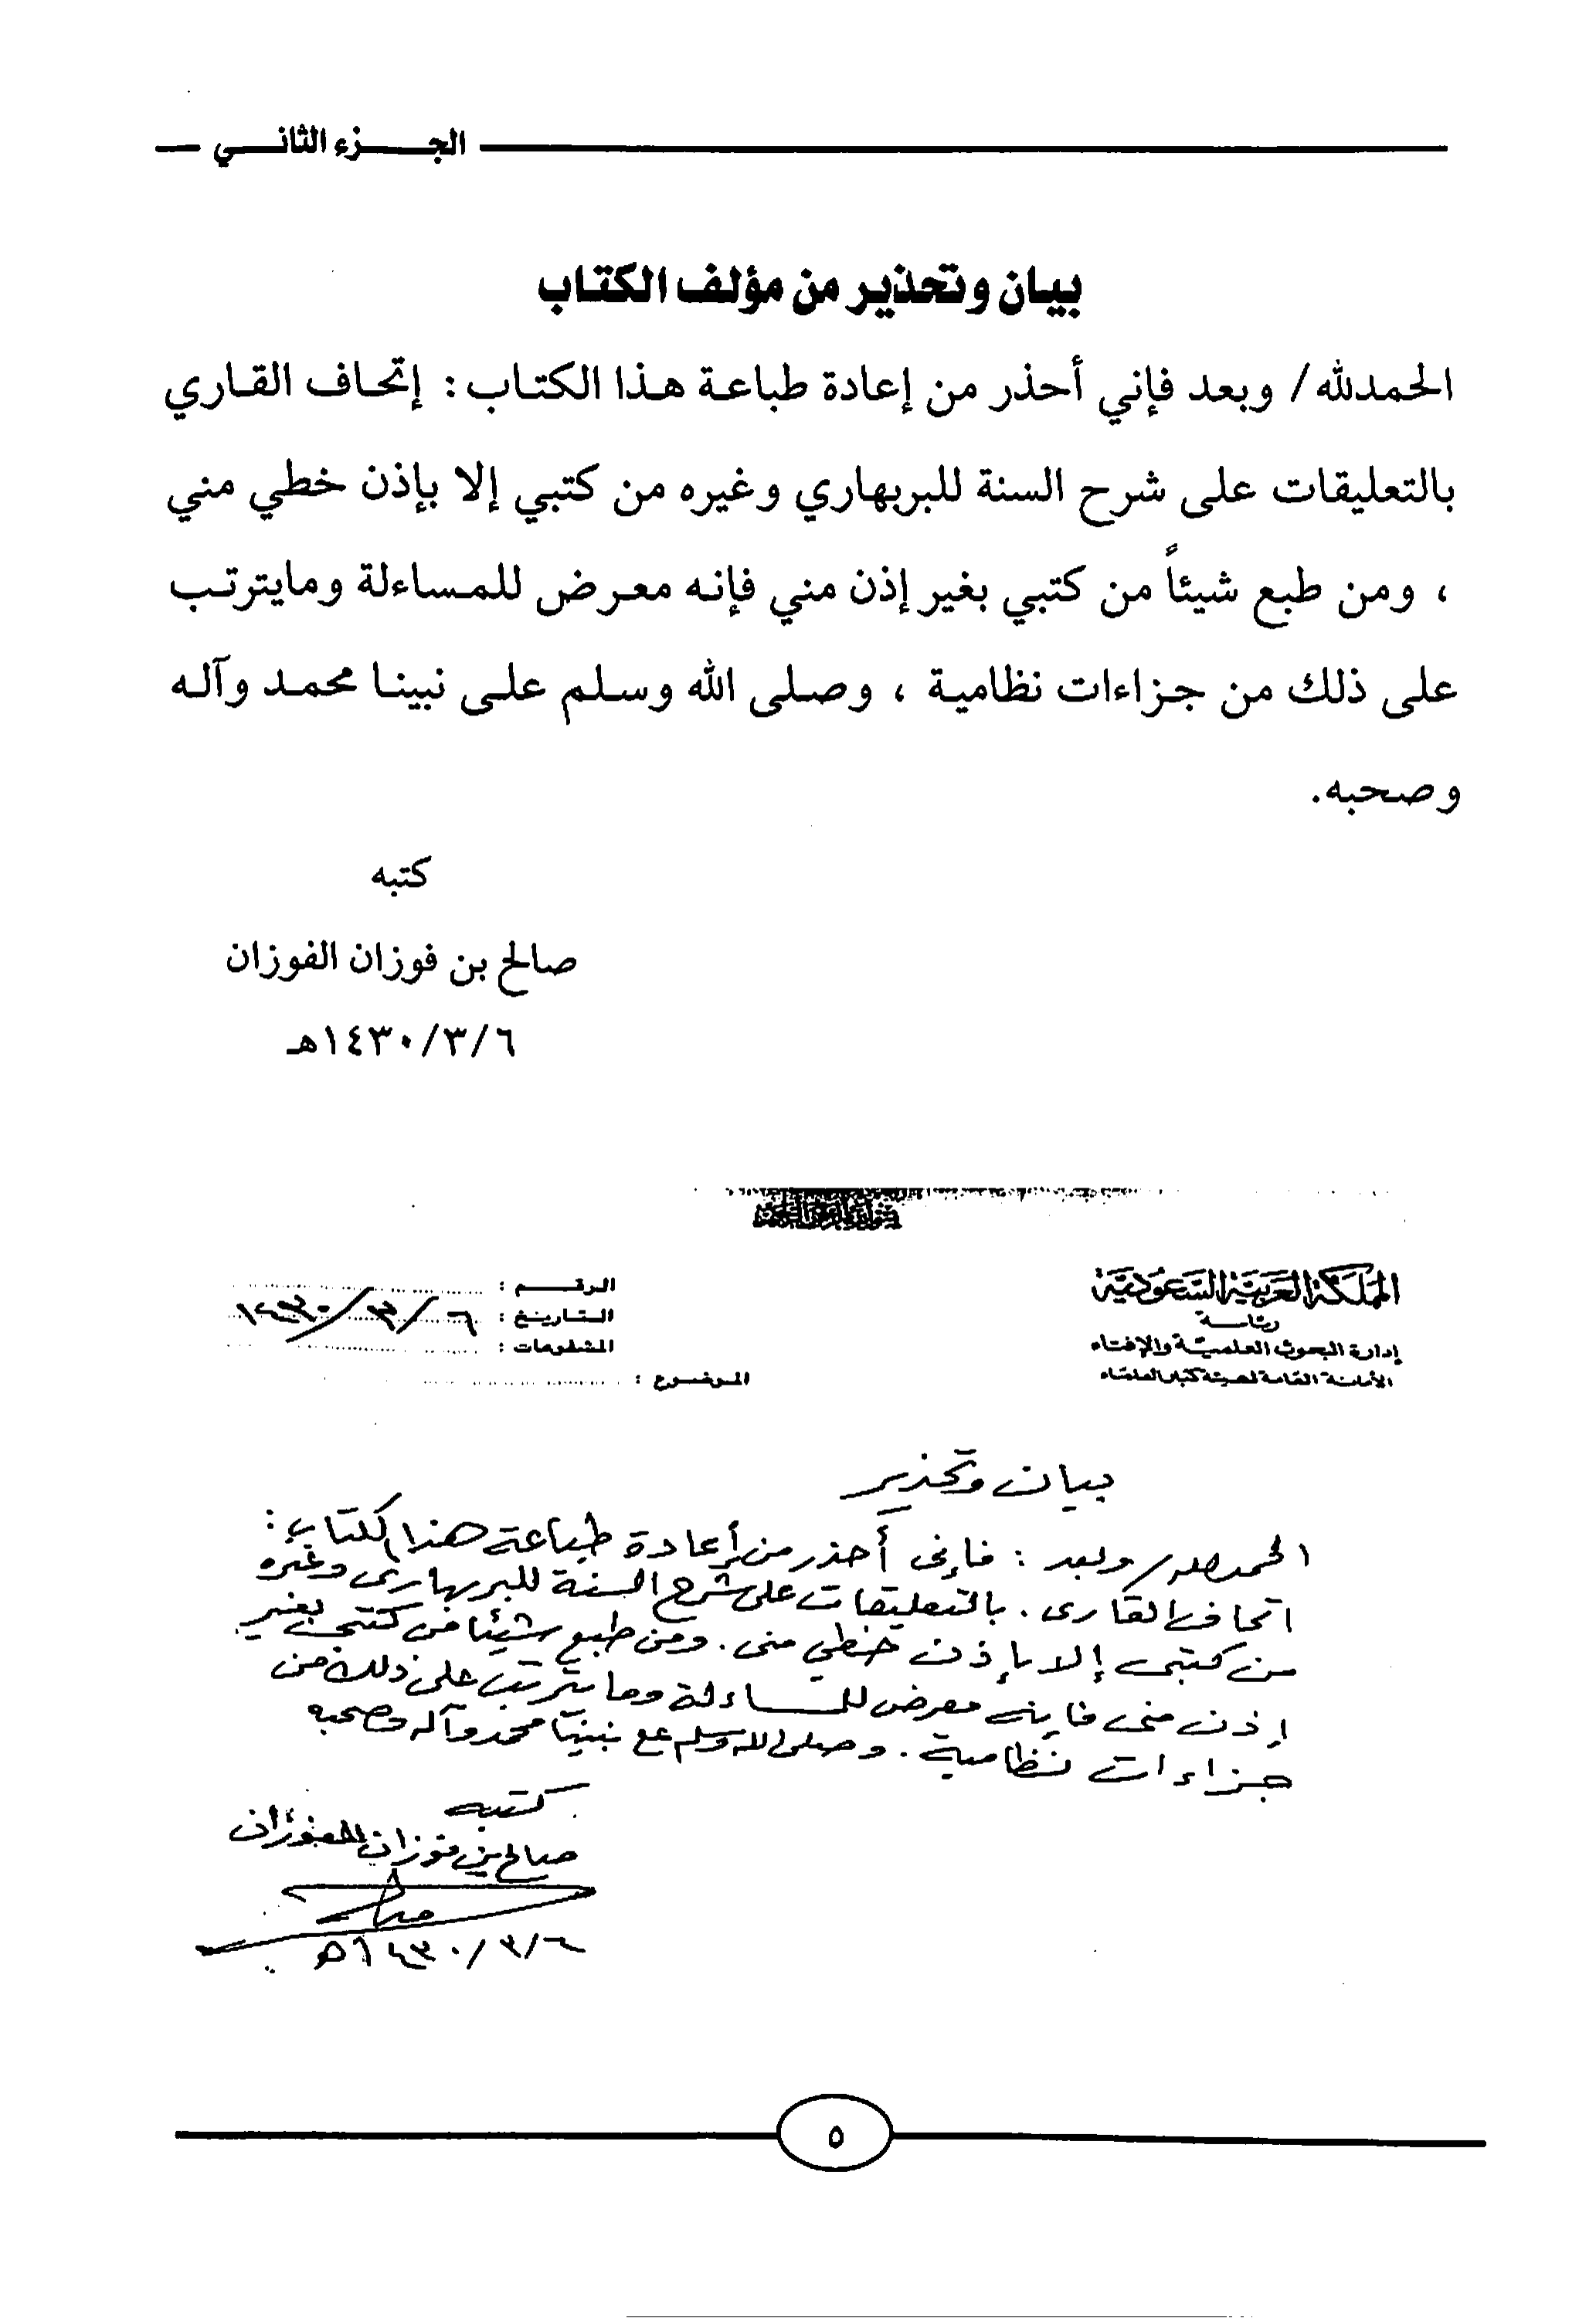 الجـــزء الثانـــي
بيان وتحذير من مؤلف الكتاب
الحمدلله / وبعد فإني أحذر من إعادة طباعة هذا الكتاب : إتحاف القاري
بالتعليقات على شرح السنة للبربهاري وغيره من كتبي إلا بإذن خطي مني
، ومن طبع شيئاً من كتبي بغير إذن مني فإنه معرض للمساءلة ومايترتب
على ذلك من جزاءات نظامية ، وصلى الله وسلم على نبينا محمد وآله
وصحبه.
كتبه
صالح بن فوزان الفوزان
١٤٣٠/٣/٦هـ
المملكة العربية السعودية
رئاسة
إدارة البحوث العلمية والإفتاء
الأمانة العامة لهيئة كبار العلماء
الرقــم :
التاريخ : ١٤٣٠/٣/٦
المشفوعات :
الموضوع :
بيان وتحذير
الحمد لله / وبعد : فإني أحذر من إعادة طباعة هذا الكتاب :
اتحاف القارى . بالتعليقات على شرح السنة للبربهارى وغيره
من كتبي إلا بإذن خطي منى . ومن طبع شيئا من كتبي بغير
إذن منى فإنه معرض للمساءلة وما يترتب على ذلك من
جزاءات نظامية . وصلى الله وسلم على نبينا محمد وآله وصحبه
كتبه
صالح بن فوزان الفوزان
١٤٣٠/٣/٦هـ
٥